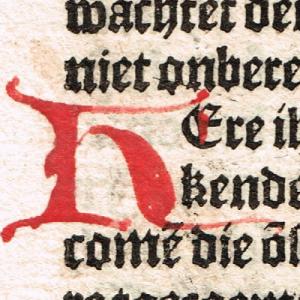 wachtet der
niet onbere
HEre ik
kende
comē die ōt